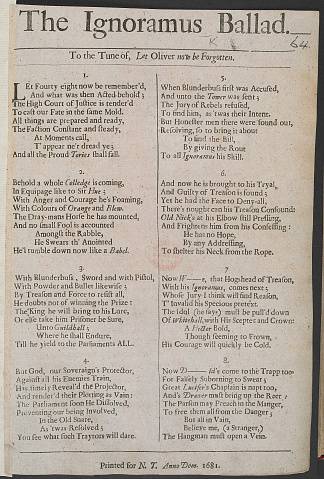 The Ignoramus Ballad.
64.
To the Tune of, Let Oliver now be Forgotten.
1.
LEt Fourty eight now be remember'd,
And what was then Acted behold;
The High Court of Justice is tender'd
To cast our Fate in the same Mold.
All things are prepared and ready,
The Faction Constant and steady,
At Moments call,
T' appear ne'r dread ye;
And all the Proud Tories shall fall.
2.
Behold a whole Colledge is coming,
In Equipage like to Sir Hue;
With Anger and Courage he's Foaming,
With Colours of Orange and Blew.
The Dray-mans Horse he has mounted,
And no small Fool is accounted
Amongst the Rabble,
He Swears th' Anointed
He'l tumble down now like a Babel.
3.
With Blunderbuss, Sword and with Pistol,
With Powder and Bullet likewise;
By Treason and Force to resist all,
He doubts not of winning the Prize:
The King he will bring to his Lure,
Or else take him Prisoner be Sure,
Unto Guildhall;
Where he shall Endure,
Till he yield to the Parliaments ALL.
4.
But God, our Soveraign's Protector,
Against all his Enemies Train,
Has timely Reveal'd the Projector,
And render'd their Plotting as Vain:
The Parliament soon He Dissolved,
Preventing our being Involved,
In the Old Snare,
As 'twas Resolved;
You see what such Traytors will dare.
5.
When Blunderbuss first was Accused,
And unto the Tower was sent;
The Jury of Rebels refused,
To find him, as 'twas their Intent.
But Honester men there were found out,
Resolving, so to bring it about
To find the Bill,
By giving the Rout
To all Ignoramus his Skill.
6.
And now he brought to his Tryal,
And Guilty of Treason is found;
Yet he had the Face to Deny-all,
There's nought can his Treason Confound:
Old Nick's at his Elbow still Pressing,
And Frightens him from his Confessing:
He has no Hope,
By any Addressing,
To shelter his Neck from the Rope.
7.
Now W——e, that Hogshead of Treason,
With his Ignoramus, comes next;
Whose Jury I think will find Reason,
T' Invalid his Specious pretext.
The idol (he says) must be pull'd down
Of Whitehall, with His Scepter and Crown:
A Hector Bold,
Though seeming to Frown,
His Courage will quickly be Cold.
8.
Now D——ld's come to the Trapp too
For Falsely Suborning to Swear;
Great Lucifer's Chaplain is rapt too,
And's Drawer must bring up the Reer:
The Parson may Preach to the Manger,
To free them all from the Danger;
But all in Vain,
Believe me, (a Stranger,)
The Hangman must open a Vein.
Printed for N. T. Anno Dom. 1681.